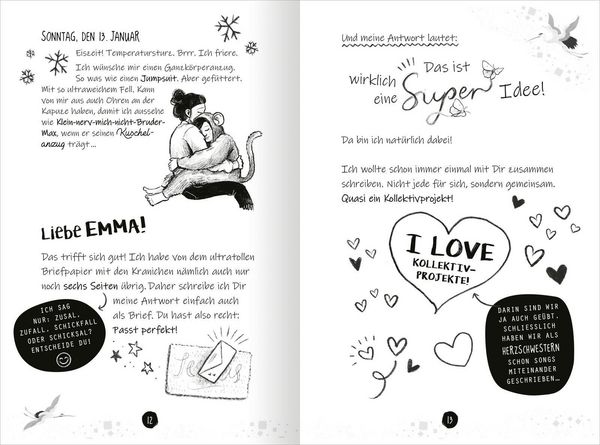 SONNTAG, DEN 13. JANUAR
Eiszeit! Temperatursturz. Brrr. Ich friere.
Ich wünsche mir einen Ganzkörperanzug.
So was wie einen Jumpsuit. Aber gefüttert.
Mit so ultraweichem Fell. Kann
von mir aus auch Ohren an der
Kapuze haben, damit ich aussehe
wie Klein-nerv-mich-nicht-Bruder-
Max, wenn er seinen Kuschel-
anzug trägt ...
LIEBE EMMA!
Das trifft sich gut! Ich habe von dem ultratollen
Briefpapier mit den Kranichen nämlich auch nur
noch sechs Seiten übrig. Daher schreibe ich Dir
meine Antwort einfach auch
als Brief. Du hast also recht:
Passt perfekt!
ICH SAG
NUR: ZUSAL,
ZUFALL, SCHICKFALL
ODER SCHICKSAL?
ENTSCHEIDE DU!
12
Und meine Antwort lautet:
Das ist
wirklich
eine Super Idee!
Da bin ich natürlich dabei!
Ich wollte schon immer einmal mit Dir zusammen
schreiben. Nicht jede für sich, sondern gemeinsam.
Quasi ein Kollektivprojekt!
I LOVE
KOLLEKTIV-
PROJEKTE!
DARIN SIND WIR
JA AUCH GEÜBT.
SCHLIESSLICH
HABEN WIR ALS
HERZSCHWESTERN
SCHON SONGS
MITEINANDER
GESCHRIEBEN...
13